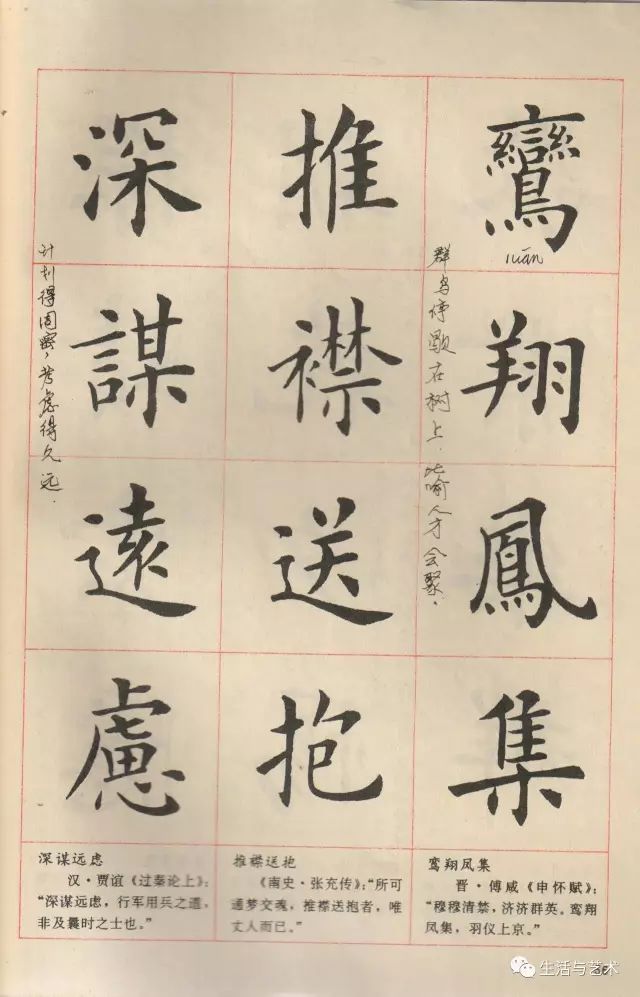 鸞翔鳳集
luán
群鸟停歇在树上.比喻人才会聚.
推襟送抱
深謀遠慮
计划得周密,考虑得久远.
鸾翔凤集
晋·傅咸《申怀赋》:
“穆穆清禁,济济群英。鸾翔
凤集,羽仪上京。”
推襟送抱
《南史·张充传》:“所可
通梦交魂,推襟送抱者,唯
丈人而已。”
深谋远虑
汉·贾谊《过秦论上》:
“深谋远虑,行军用兵之道,
非及曩时之士也。”
生活与艺术